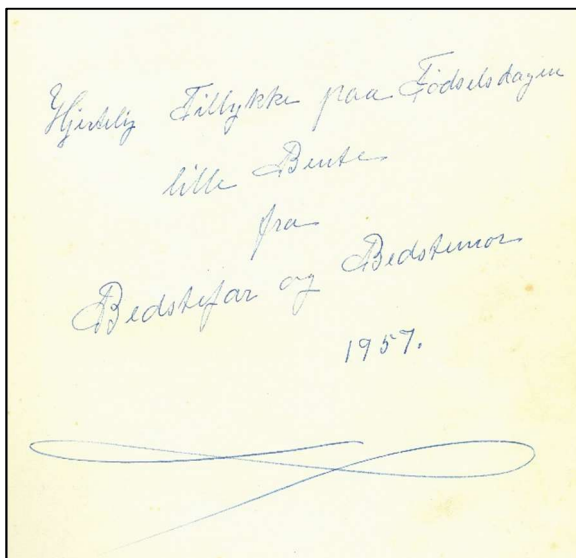 Hjertelig Tillykke paa Fødselsdagen
lille Bente
fra
Bedstefar og Bedstemor
1957.